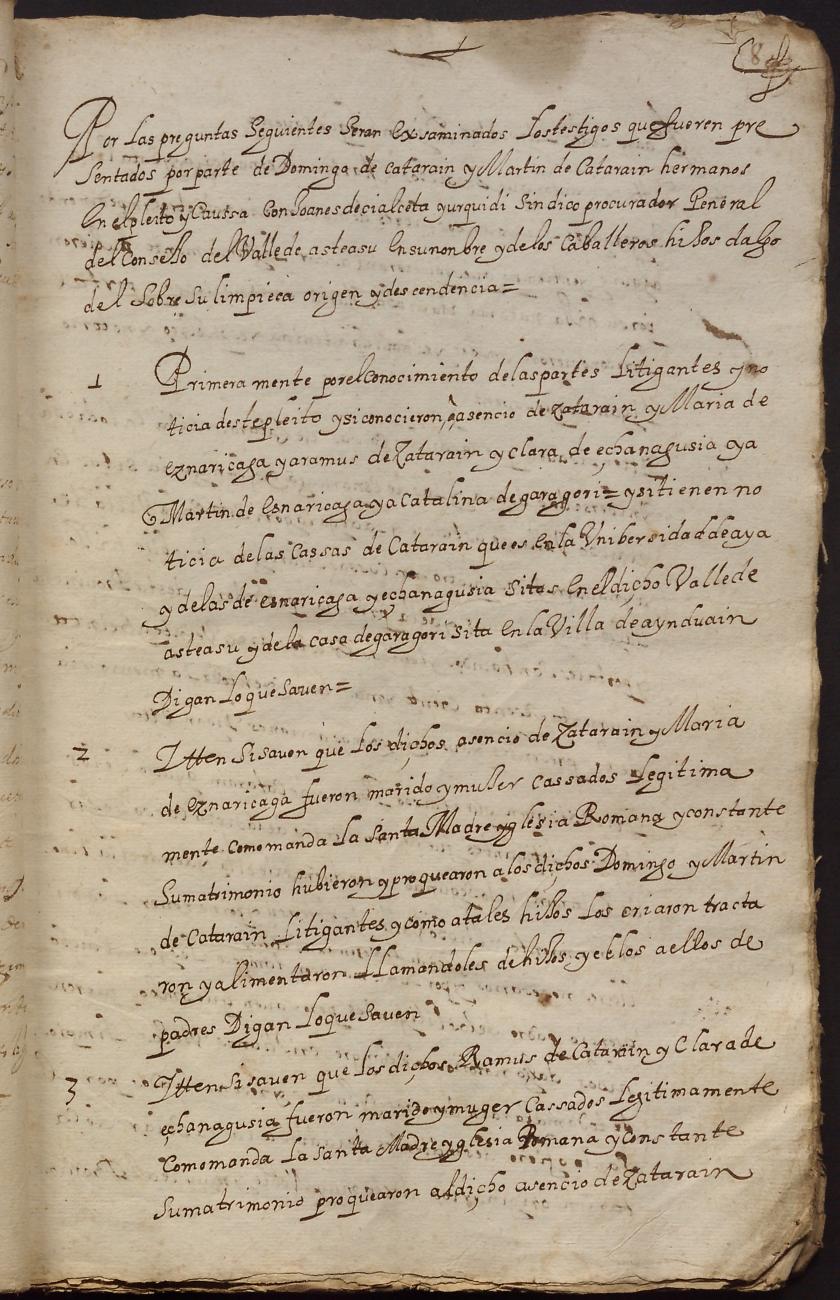 8
Por las preguntas Seguientes Seran Exsaminados Los testigos que fueren pre
Sentados por parte de Domingo de catarain y Martin de Catarain hermanos
En el pleito y Caussa Con Joanes de cialceta yurquidi Sindico procurador General
del Consejo del Valle de asteasu En su nonbre y de los Caballeros hijos dalgo
del Sobre Su limpieça origen y descendencia=
1 Primera mente por el Conocimiento de las partes Litigantes y no
ticia deste pleito y si conocieron a asencio de Zatarain y Maria de
eznaricaga y a ramus de Zatarain y clara de echanagusia y a
Martin de Esnaricaga y a Catalina de garagori= y si tienen no
ticia de las Cassas de Catarain que es En la Unibersidad de aya
y de las de esnariçaga y echanagusia Sitas En el dicho Valle de
asteasu y de la casa de garagori Sita En la Villa de aynduain
Digan Lo que Saven=
2 Itten Si saven que Los dichos asencio de Zatarain y Maria
de Eznaricaga fueron marido y mujer Cassados Legitima
mente Como manda La Santa Madre yglesia Romana y constante
Su matrimonio hubieron y proquearon a los dichos Domingo y Martin
de Catarain Litigantes y como a tales hijos Los criaron tracta
ron y alimentaron LLamandoles de hijos y ellos a ellos de
padres Digan Lo que Saven
3 Itten Si saven que Los dichos Ramus de Catarain y Clara de
echanagusia fueron marido y muger Cassados Legitimamente
Como manda La santa Madre yglesia Romana y Constante
Su matrimonio proquearon al dicho asencio de Zatarain